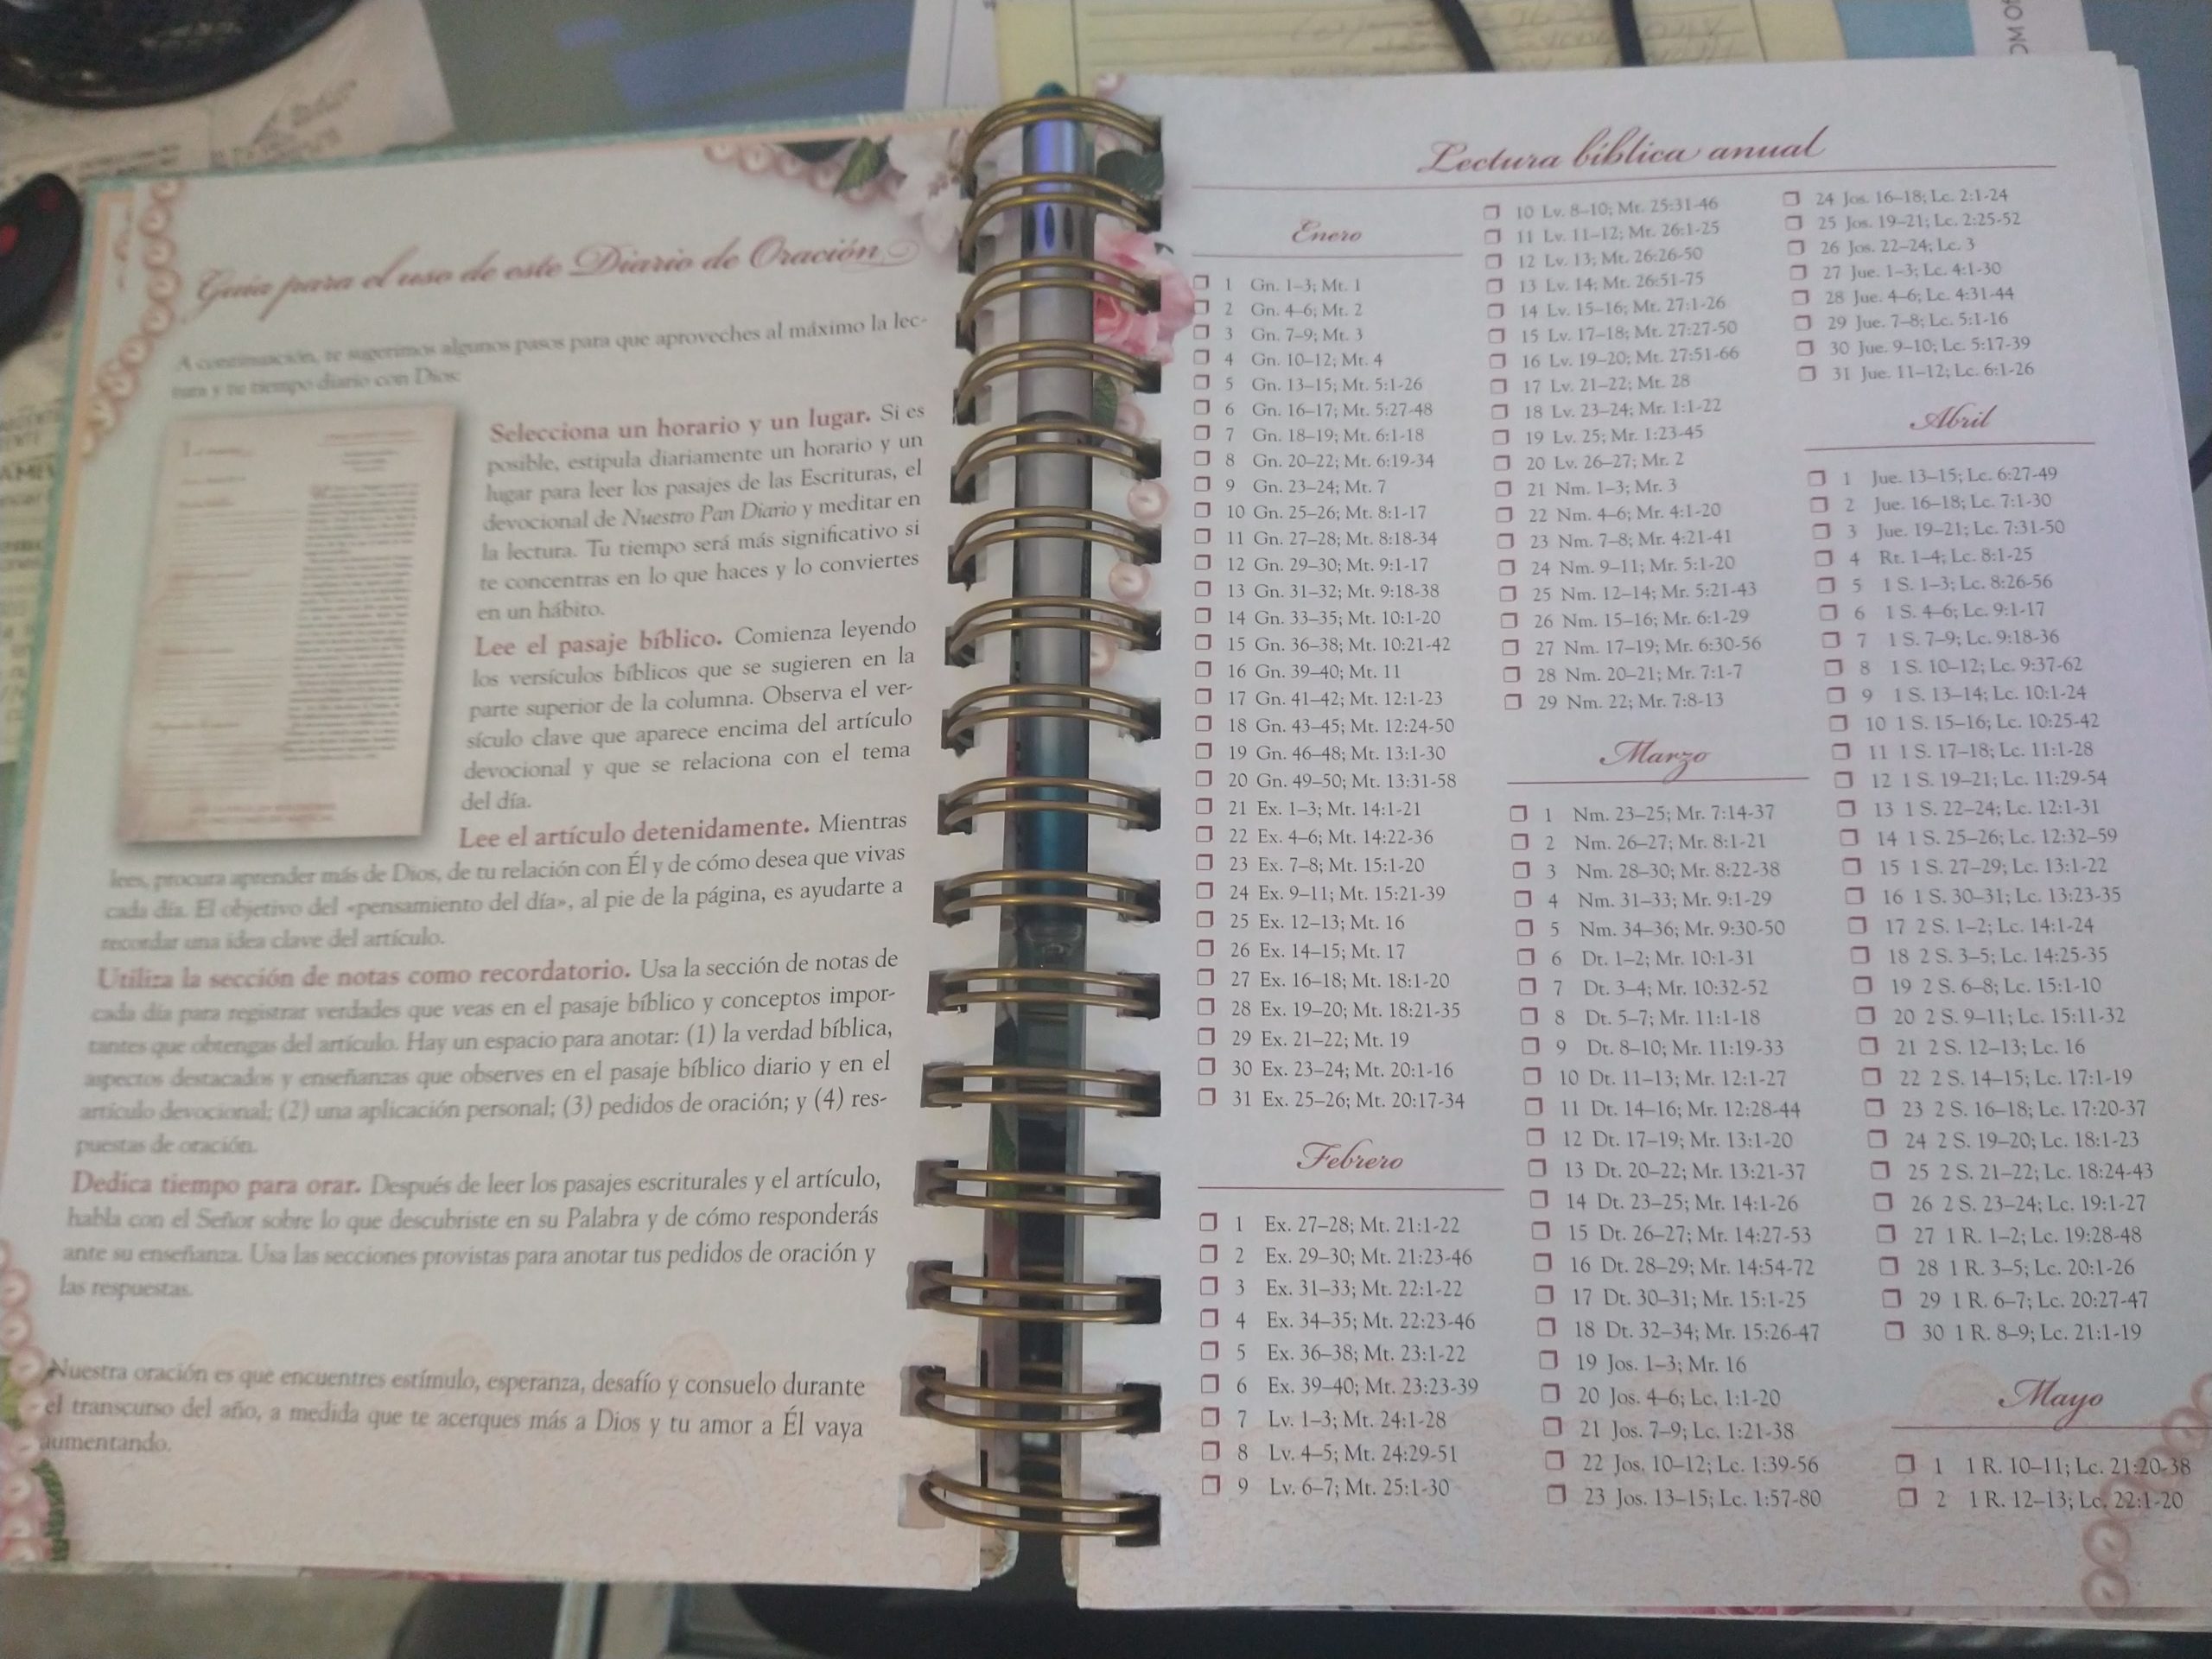 Guía para el uso de este Diario de Oración
A continuación, te sugerimos algunos pasos para que aproveches al máximo la lec-
tura y tu tiempo diario con Dios:
Selecciona un horario y un lugar. Si es
posible, estipula diariamente un horario y un
lugar para leer los pasajes de las Escrituras, el
devocional de Nuestro Pan Diario y meditar en
la lectura. Tu tiempo será más significativo si
te concentras en lo que haces y lo conviertes
en un hábito.
Lee el pasaje bíblico. Comienza leyendo
los versículos bíblicos que se sugieren en la
parte superior de la columna. Observa el ver-
sículo clave que aparece encima del artículo
devocional y que se relaciona con el tema
del día.
Lee el artículo detenidamente. Mientras
lees, procura aprender más de Dios, de tu relación con Él y de cómo desea que vivas
cada día. El objetivo del «pensamiento del día», al pie de la página, es ayudarte a
recordar una idea clave del artículo.
Utiliza la sección de notas como recordatorio. Usa la sección de notas de
cada día para registrar verdades que veas en el pasaje bíblico y conceptos impor-
tantes que obtengas del artículo. Hay un espacio para anotar: (1) la verdad bíblica,
aspectos destacados y enseñanzas que observes en el pasaje bíblico diario y en el
artículo devocional; (2) una aplicación personal; (3) pedidos de oración; y (4) res-
puestas de oración.
Dedica tiempo para orar. Después de leer los pasajes escriturales y el artículo,
habla con el Señor sobre lo que descubriste en su Palabra y de cómo responderás
ante su enseñanza. Usa las secciones provistas para anotar tus pedidos de oración y
las respuestas.
Nuestra oración es que encuentres estímulo, esperanza, desafío y consuelo durante
el transcurso del año, a medida que te acerques más a Dios y tu amor a Él vaya
aumentando.
Lectura bíblica anual
Enero
1 Gn. 1–3; Mt. 1
2 Gn. 4–6; Mt. 2
3 Gn. 7–9; Mt. 3
4 Gn. 10–12; Mt. 4
5 Gn. 13–15; Mt. 5:1-26
6 Gn. 16–17; Mt. 5:27-48
7 Gn. 18–19; Mt. 6:1-18
8 Gn. 20–22; Mt. 6:19-34
9 Gn. 23–24; Mt. 7
10 Gn. 25–26; Mt. 8:1-17
11 Gn. 27–28; Mt. 8:18-34
12 Gn. 29–30; Mt. 9:1-17
13 Gn. 31–32; Mt. 9:18-38
14 Gn. 33–35; Mt. 10:1-20
15 Gn. 36–38; Mt. 10:21-42
16 Gn. 39–40; Mt. 11
17 Gn. 41–42; Mt. 12:1-23
18 Gn. 43–45; Mt. 12:24-50
19 Gn. 46–48; Mt. 13:1-30
20 Gn. 49–50; Mt. 13:31-58
21 Ex. 1–3; Mt. 14:1-21
22 Ex. 4–6; Mt. 14:22-36
23 Ex. 7–8; Mt. 15:1-20
24 Ex. 9–11; Mt. 15:21-39
25 Ex. 12–13; Mt. 16
26 Ex. 14–15; Mt. 17
27 Ex. 16–18; Mt. 18:1-20
28 Ex. 19–20; Mt. 18:21-35
29 Ex. 21–22; Mt. 19
30 Ex. 23–24; Mt. 20:1-16
31 Ex. 25–26; Mt. 20:17-34
Febrero
1 Ex. 27–28; Mt. 21:1-22
2 Ex. 29–30; Mt. 21:23-46
3 Ex. 31–33; Mt. 22:1-22
4 Ex. 34–35; Mt. 22:23-46
5 Ex. 36–38; Mt. 23:1-22
6 Ex. 39–40; Mt. 23:23-39
7 Lv. 1–3; Mt. 24:1-28
8 Lv. 4–5; Mt. 24:29-51
9 Lv. 6–7; Mt. 25:1-30
10 Lv. 8–10; Mt. 25:31-46
11 Lv. 11–12; Mt. 26:1-25
12 Lv. 13; Mt. 26:26-50
13 Lv. 14; Mt. 26:51-75
14 Lv. 15–16; Mt. 27:1-26
15 Lv. 17–18; Mt. 27:27-50
16 Lv. 19–20; Mt. 27:51-66
17 Lv. 21–22; Mt. 28
18 Lv. 23–24; Mr. 1:1-22
19 Lv. 25; Mr. 1:23-45
20 Lv. 26–27; Mr. 2
21 Nm. 1–3; Mr. 3
22 Nm. 4–6; Mr. 4:1-20
23 Nm. 7–8; Mr. 4:21-41
24 Nm. 9–11; Mr. 5:1-20
25 Nm. 12–14; Mr. 5:21-43
26 Nm. 15–16; Mr. 6:1-29
27 Nm. 17–19; Mr. 6:30-56
28 Nm. 20–21; Mr. 7:1-7
29 Nm. 22; Mr. 7:8-13
Marzo
1 Nm. 23–25; Mr. 7:14-37
2 Nm. 26–27; Mr. 8:1-21
3 Nm. 28–30; Mr. 8:22-38
4 Nm. 31–33; Mr. 9:1-29
5 Nm. 34–36; Mr. 9:30-50
6 Dt. 1–2; Mr. 10:1-31
7 Dt. 3–4; Mr. 10:32-52
8 Dt. 5–7; Mr. 11:1-18
9 Dt. 8–10; Mr. 11:19-33
10 Dt. 11–13; Mr. 12:1-27
11 Dt. 14–16; Mr. 12:28-44
12 Dt. 17–19; Mr. 13:1-20
13 Dt. 20–22; Mr. 13:21-37
14 Dt. 23–25; Mr. 14:1-26
15 Dt. 26–27; Mr. 14:27-53
16 Dt. 28–29; Mr. 14:54-72
17 Dt. 30–31; Mr. 15:1-25
18 Dt. 32–34; Mr. 15:26-47
19 Jos. 1–3; Mr. 16
20 Jos. 4–6; Lc. 1:1-20
21 Jos. 7–9; Lc. 1:21-38
22 Jos. 10–12; Lc. 1:39-56
23 Jos. 13–15; Lc. 1:57-80
24 Jos. 16–18; Lc. 2:1-24
25 Jos. 19–21; Lc. 2:25-52
26 Jos. 22–24; Lc. 3
27 Jue. 1–3; Lc. 4:1-30
28 Jue. 4–6; Lc. 4:31-44
29 Jue. 7–8; Lc. 5:1-16
30 Jue. 9–10; Lc. 5:17-39
31 Jue. 11–12; Lc. 6:1-26
Abril
1 Jue. 13–15; Lc. 6:27-49
2 Jue. 16–18; Lc. 7:1-30
3 Jue. 19–21; Lc. 7:31-50
4 Rt. 1–4; Lc. 8:1-25
5 1 S. 1–3; Lc. 8:26-56
6 1 S. 4–6; Lc. 9:1-17
7 1 S. 7–9; Lc. 9:18-36
8 1 S. 10–12; Lc. 9:37-62
9 1 S. 13–14; Lc. 10:1-24
10 1 S. 15–16; Lc. 10:25-42
11 1 S. 17–18; Lc. 11:1-28
12 1 S. 19–21; Lc. 11:29-54
13 1 S. 22–24; Lc. 12:1-31
14 1 S. 25–26; Lc. 12:32–59
15 1 S. 27–29; Lc. 13:1-22
16 1 S. 30–31; Lc. 13:23-35
17 2 S. 1–2; Lc. 14:1-24
18 2 S. 3–5; Lc. 14:25-35
19 2 S. 6–8; Lc. 15:1-10
20 2 S. 9–11; Lc. 15:11-32
21 2 S. 12–13; Lc. 16
22 2 S. 14–15; Lc. 17:1-19
23 2 S. 16–18; Lc. 17:20-37
24 2 S. 19–20; Lc. 18:1-23
25 2 S. 21–22; Lc. 18:24-43
26 2 S. 23–24; Lc. 19:1-27
27 1 R. 1–2; Lc. 19:28-48
28 1 R. 3–5; Lc. 20:1-26
29 1 R. 6–7; Lc. 20:27-47
30 1 R. 8–9; Lc. 21:1-19
Mayo
1 1 R. 10–11; Lc. 21:20-38
2 1 R. 12–13; Lc. 22:1-20